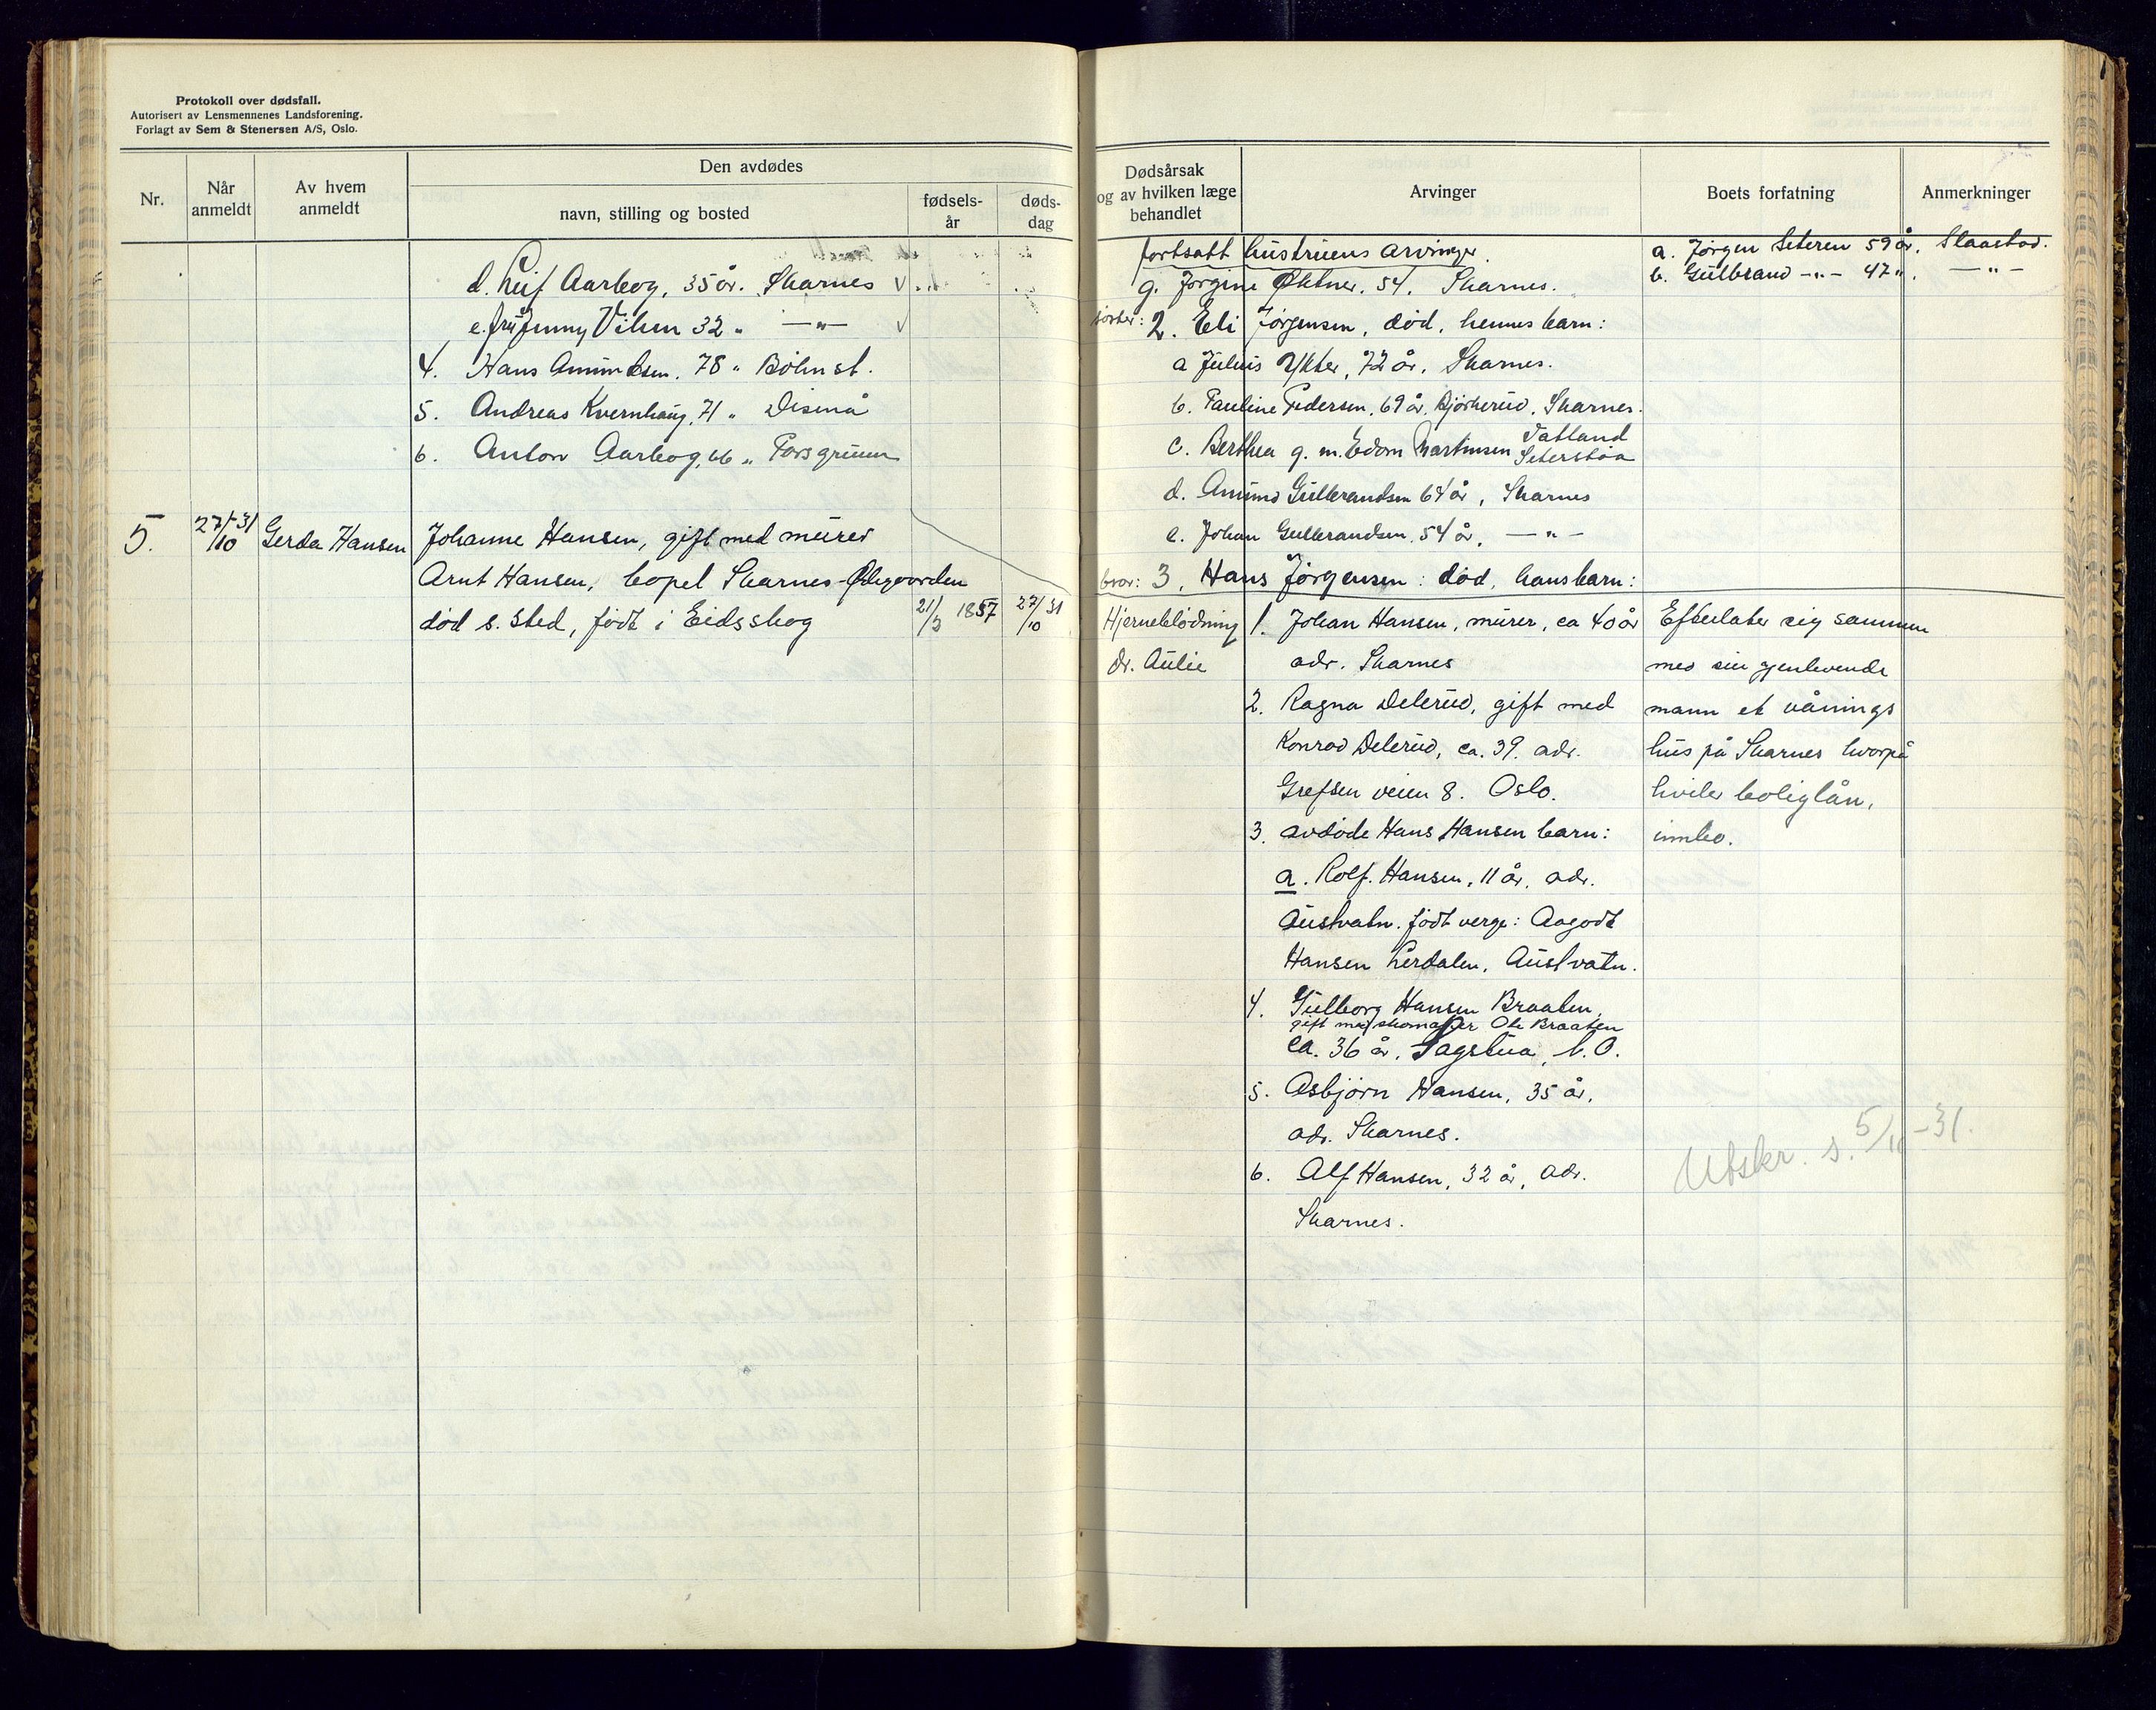 Protokoll over dødsfall.
Autorisert av Lensmennenes Landsforening.
Forlagt av Sem & Stenersen A/S, Oslo.
Nr.
Når anmeldt
Av hvem anmeldt
Den avdødes
navn, stilling og bosted
fødsels-år
døds-dag
d. Leif Aarbog, 35 år. Skarnes v
e. fru Jenny Vilum 32 " —"— v
4. Hans Amundsen, 78 " Bøhn st.
5. Andreas Kvernhaug, 71 " Disenå
6. Anton Aarbog, 66 " Porsgrunn
5. 27/10-31 Gerda Hansen Johanne Hansen, gift med murer
Arnt Hansen, bopel Skarnes-Ødegaarden
død s. sted, født i Eidsskog 21/3 1857 27/10 31
Dødsårsak og av hvilken læge behandlet
Arvinger
Boets forfatning
Anmerkninger
fortsatt hustruens arvinger.
g. Jørgine Øktner. 54. Skarnes.
søster: 2. Eli Jørgensen, død, hennes barn:
a Julius Ykter, 72 år. Skarnes.
b. Pauline Pedersen, 69 år, Bjørkerud, Skarnes.
c. Berthea g. m. Edom Martinsen Vatland Seterstøa
d. Amund Gulbrandsen 64 år, Skarnes
e. Johan Gulbrandsen, 54 år, —"—
bror: 3. Hans Jørgensen: død, hans barn:
a. Jørgen Seteren 59 år. Slaastad.
b. Gulbrand —"— 47 ". —"—
Hjerneblødning
dr. Aulie
1. Johan Hansen, murer, ca 40 år
adr. Skarnes
2. Ragna Delerud, gift med
Konrad Delerud, ca. 39. adr.
Grefsen veien 8. Oslo.
3. avdøde Hans Hansen barn:
a. Rolf Hansen, 11 år, adr.
Austvatn. født verge: Aagodt
Hansen Lerdalen, Austvatn.
4. Gulborg Hansen Braaten,
gift med skomaker Ole Braaten
ca. 36 år, Sagstua, N. O.
5. Asbjørn Hansen, 35 år.
adr. Skarnes.
6. Alf Hansen, 32 år, adr.
Skarnes.
Efterlater sig sammen
med sin gjenlevende
mann et vånings
hus på Skarnes hvorpå
hviler boliglån,
innbo.
Utskr. s. 5/11-31.